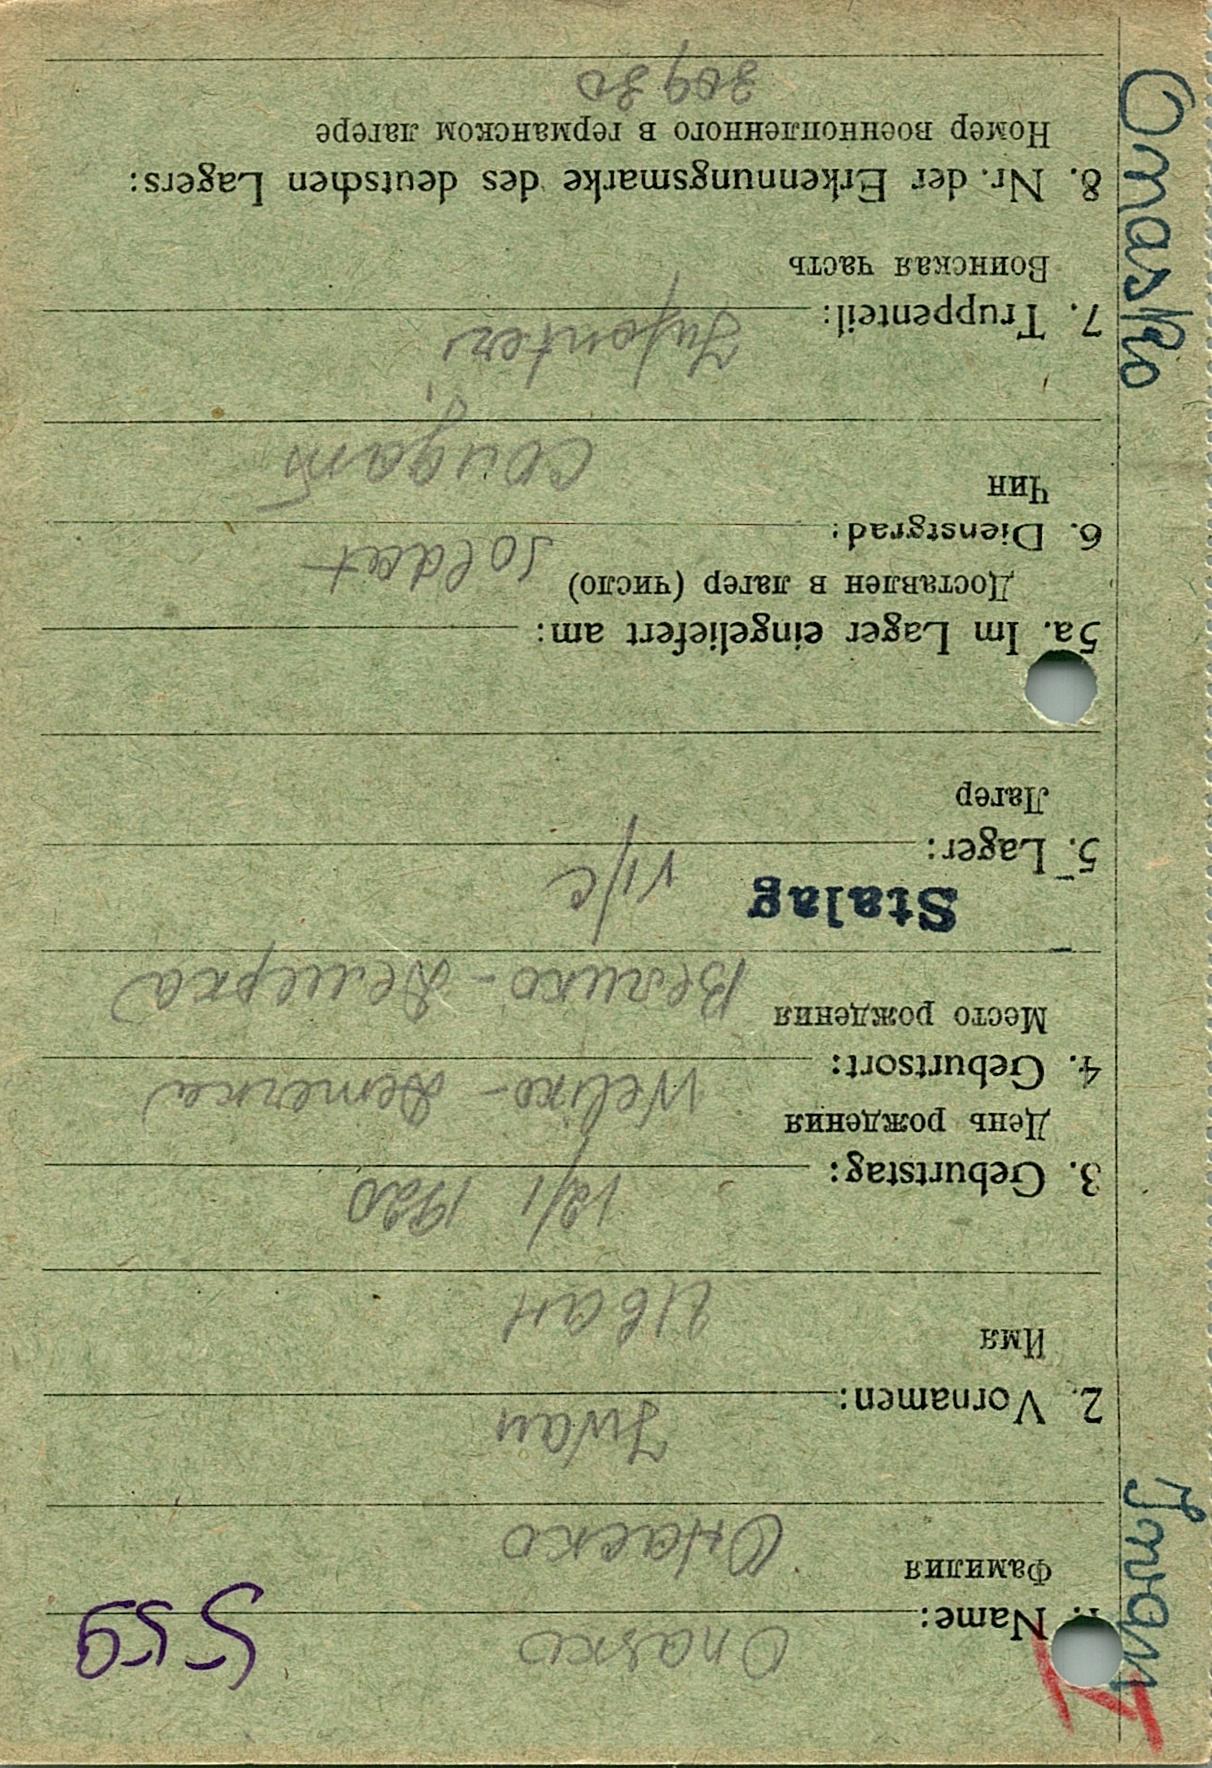 559
1. Name: Onasko
Фамилия Онаско
2. Vornamen: Iwan
Имя Иван
3. Geburtstag: 12/I 1920
День рождения
4. Geburtsort: Weliko-Demerka
Место рождения Велико-Демерка
5. Lager: Stalag VI/C
Лагер
5a. Im Lager eingeliefert am:
Доставлен в лагер (число)
6. Dienstgrad: Soldat
Чин солдат
7. Truppenteil: Infanter
Воинская часть
8. Nr. der Erkennungsmarke des deutschen Lagers:
Номер военнопленного в германском лагере
30930
Onasko Iwan